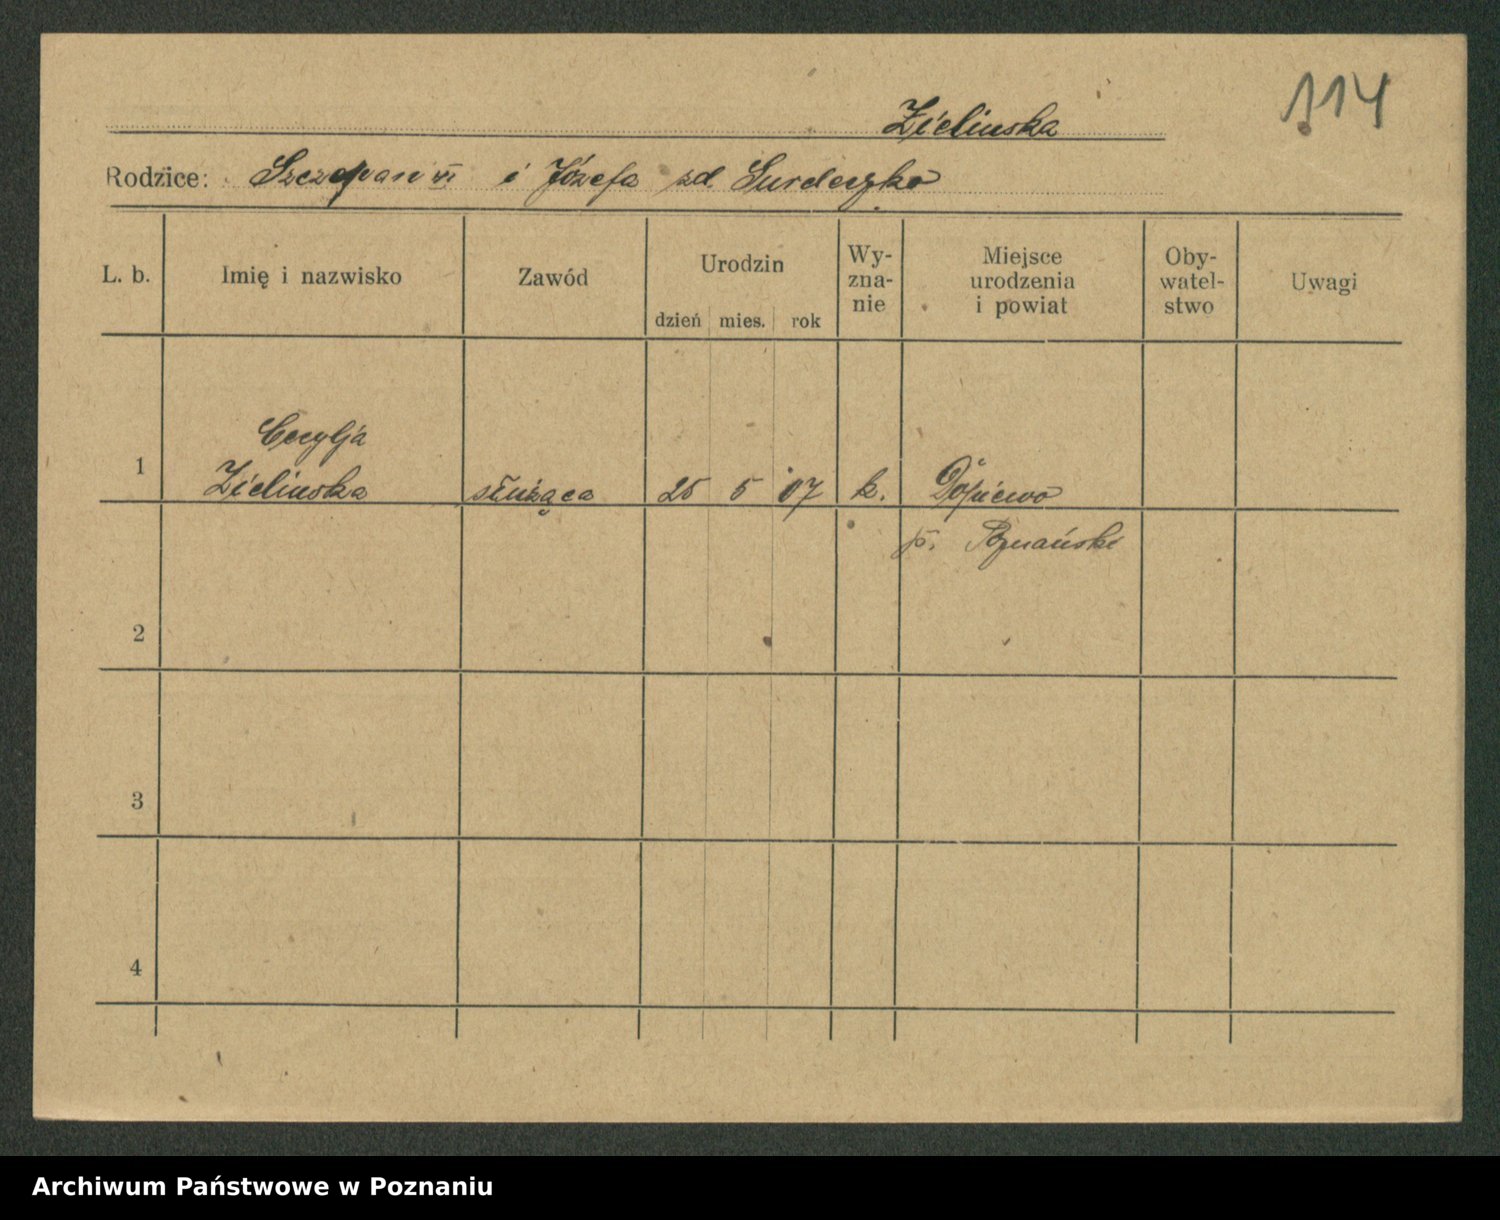 114
Zielinska
Rodzice: Szczepan i Józefa zd.
L. b. Imię i nazwisko Zawód Urodzin dzień mies. rok Wy-zna-nie Miejsce urodzenia i powiat Oby-watel-stwo Uwagi
Cecylja
1 Zielinska służąca 25 5 07 k. Dopiewo
p. Poznański
2
3
4
Archiwum Państwowe w Poznaniu